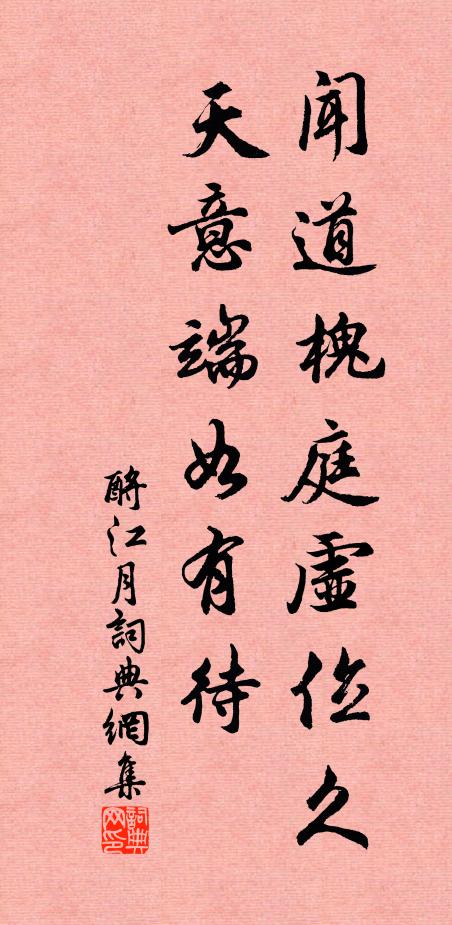 闻道槐庭虚位久
天意端如有待
酹江月詞典網集
詞典网印